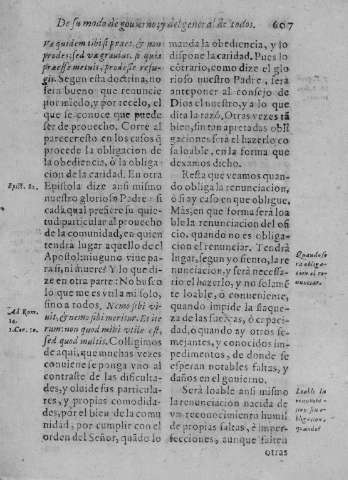 De su modo de gouierno, y del general de todos. 607
Væ quidem tibi si præes, & non
prodes: sed væ grauius, si quia
præesse metuis, prodesse refu-
gis. Segun esta doctrina, no
será bueno que renuncie
por miedo, y por recelo, el
que se conoce que puede
ser de prouecho. Corre al
parecer esto en los casos q̃
procede la obligacion de
la obediencia, ò la obliga-
cion de la caridad. En otra
Epistola dize assi mismo
nuestro glorioso Padre: si
cada qual prefiere su quie-
tud particular al prouecho
de la comunidad, en quien
tendrá lugar aquello de el
Apostol: ninguno viue pa-
ra si, ni muere? Y lo que di-
ze en otra parte: No busco
lo que me es vtil a mi solo,
sino a todos. Nemo sibi vi-
uit, & nemo sibi moritur. Et ite-
rum: non quod mihi vtile est,
sed quod multis. Colligimos
de aqui, que muchas vezes
conuiene se ponga vno al
contraste de las dificulta-
des, y oluide sus particula-
res, y propias comodida-
des, por el bien de la comu
nidad; por cumplir con el
orden del Señor, quãdo lo
Epist. 82.
Ad Rom.
14.
1. Cor. 10.
manda la obediencia, y lo
dispone la caridad. Pues lo
cõtrario, como dize el glo-
rioso nuestro Padre, será
anteponer al consejo de
Dios el nuestro, y a lo que
dita la razõ. Otras vezes tã
bien, sin tan apretadas obli
gaciones será el hazerlo co
sa loable, en la forma que
dexamos dicho.
Resta que veamos quan-
do obliga la renunciacion,
ò si ay caso en que obligue.
Mas, en que forma será loa
ble la renunciacion del ofi
cio, quando no es obliga-
cion el renunciar. Tendrá
lugar, segun yo siento, la re
nunciacion, y será necessa-
rio el hazerlo, y no solamẽ
te loable, ò conueniente,
quando impide la flaque-
za de las fuerças, ò ce pa-
cidad, ò quando ay otros se
mejantes, y conocidos im-
pedimentos, de donde se
esperan notables faltas, y
daños en el gouierno.
Será loable assi mismo
la renunciacion nacida de
vn reconocimiento humil
de propias faltas, è imper-
fecciones, aunque falten
otras
Quando se
rá obliga-
cion el re-
nunciar.
Loable la